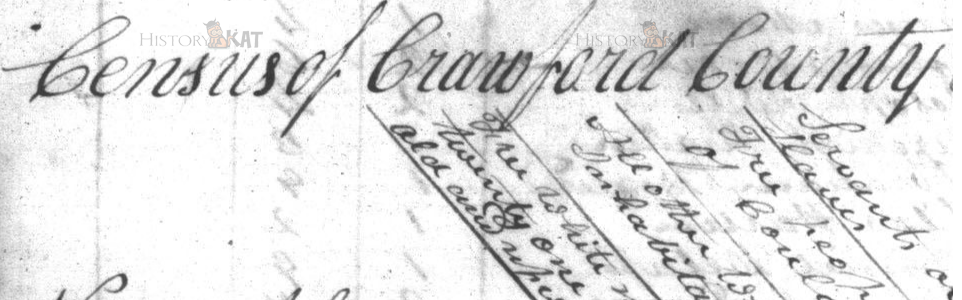 HISTORY KAT HISTORY KAT
Census of Crawford County
Free White
twenty one
old and
All other
Inhabita
Free
of
Servants
Slaves